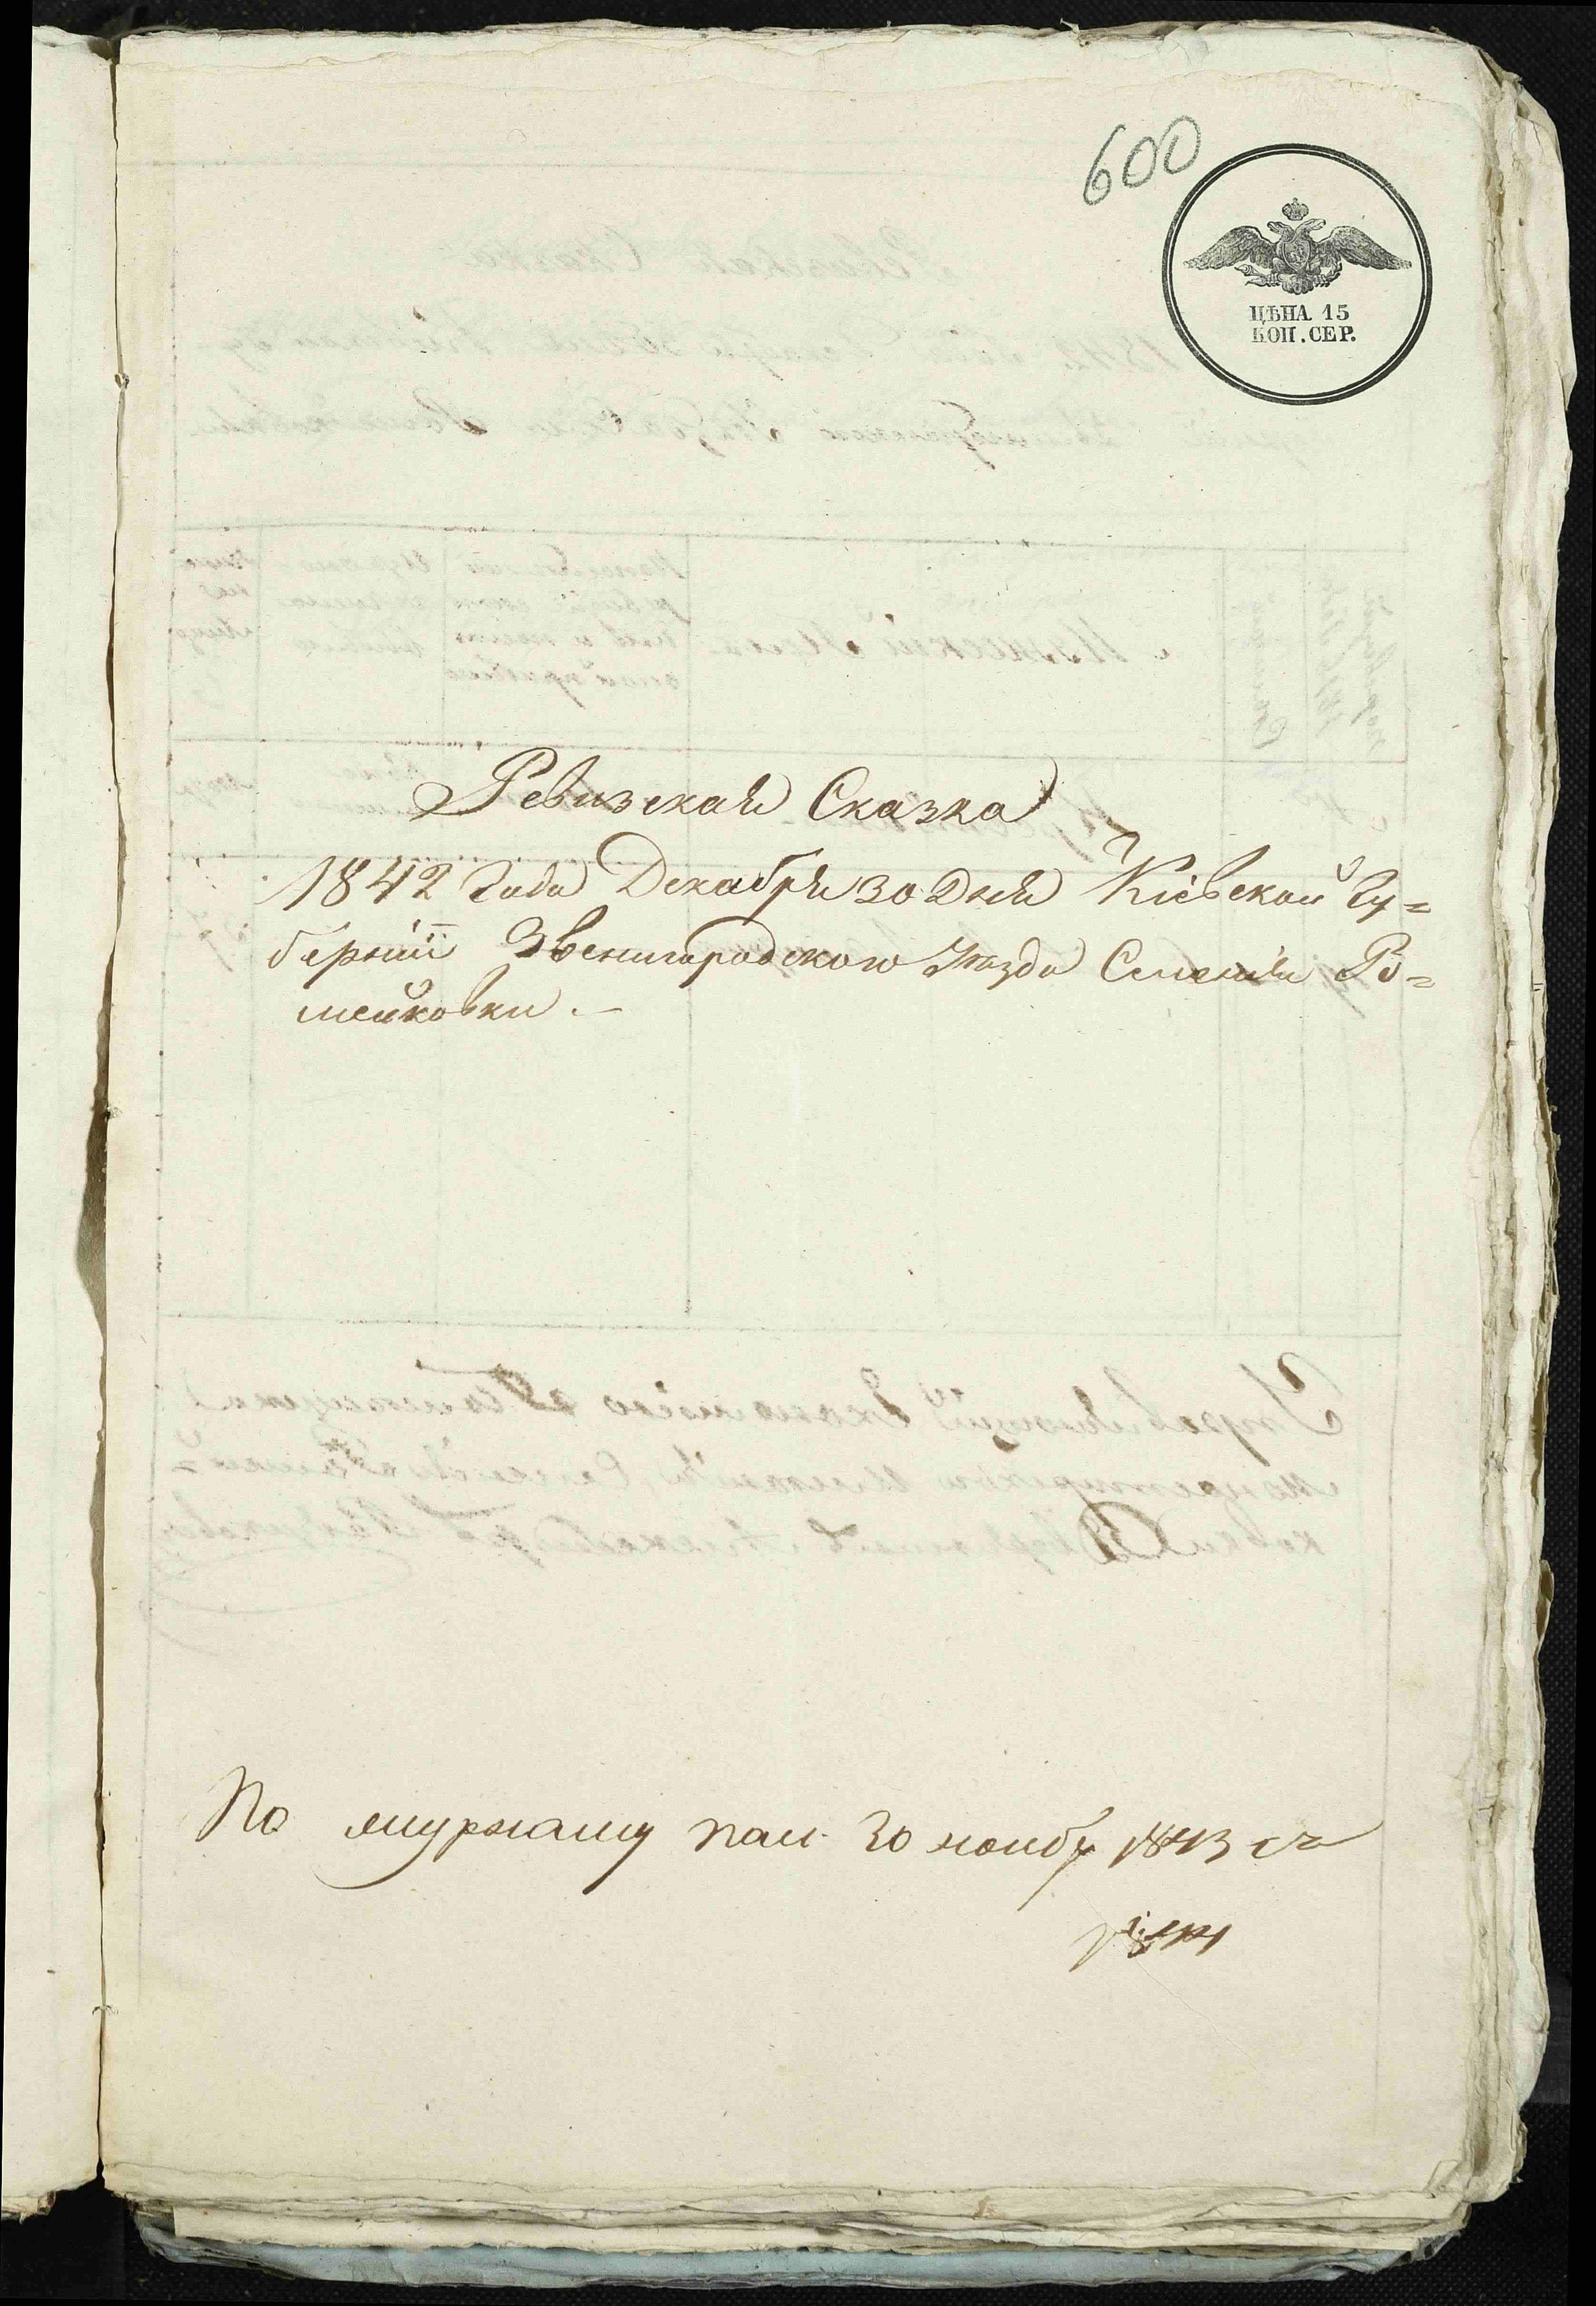 600
ЦѢНА 15
КОП. СЕР.
Ревизская Сказка
1842 Года Декабря 30 Дня Кіевской Гу=
берніи Звенигородского Уѣзда Селенія Ро=
мейковки.—
По журналу пал. 30 нояб 1843 г.